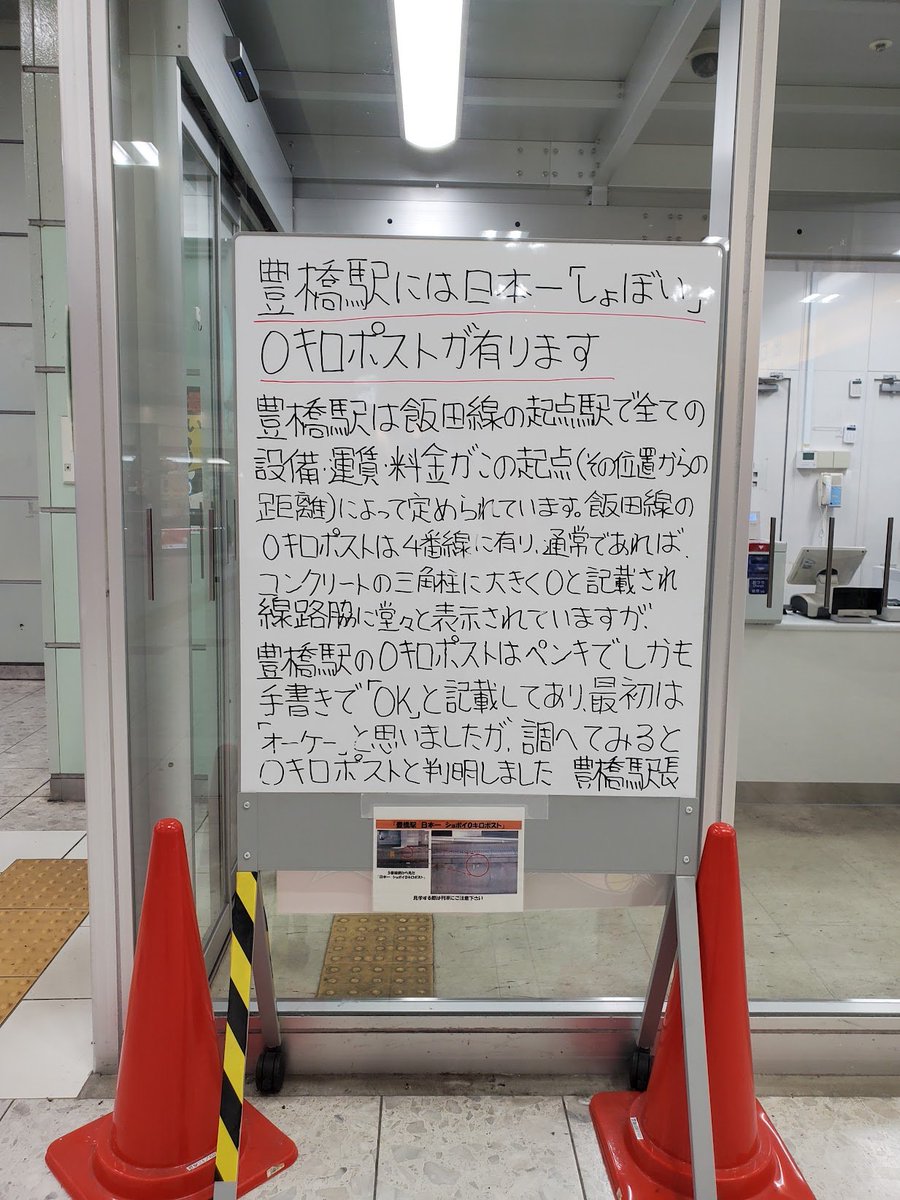 豊橋駅には日本一「しょぼい」
0キロポストが有ります
豊橋駅は飯田線の起点駅で全ての
設備・運賃・料金がこの起点(その位置からの
距離)によって定められています。飯田線の
0キロポストは4番線に有り、通常であれば、
コンクリートの三角柱に大きく0と記載され
線路脇に堂々と表示されていますが、
豊橋駅の0キロポストはペンキでしかも
手書きで「OK」と記載してあり、最初は
「オーケー」と思いましたが、調べてみると
0キロポストと判明しました 豊橋駅長
「豊橋駅 日本一 ショボイ0キロポスト」
「日本一 ショボイ0キロポスト」
見学する際は列車にご注意下さい